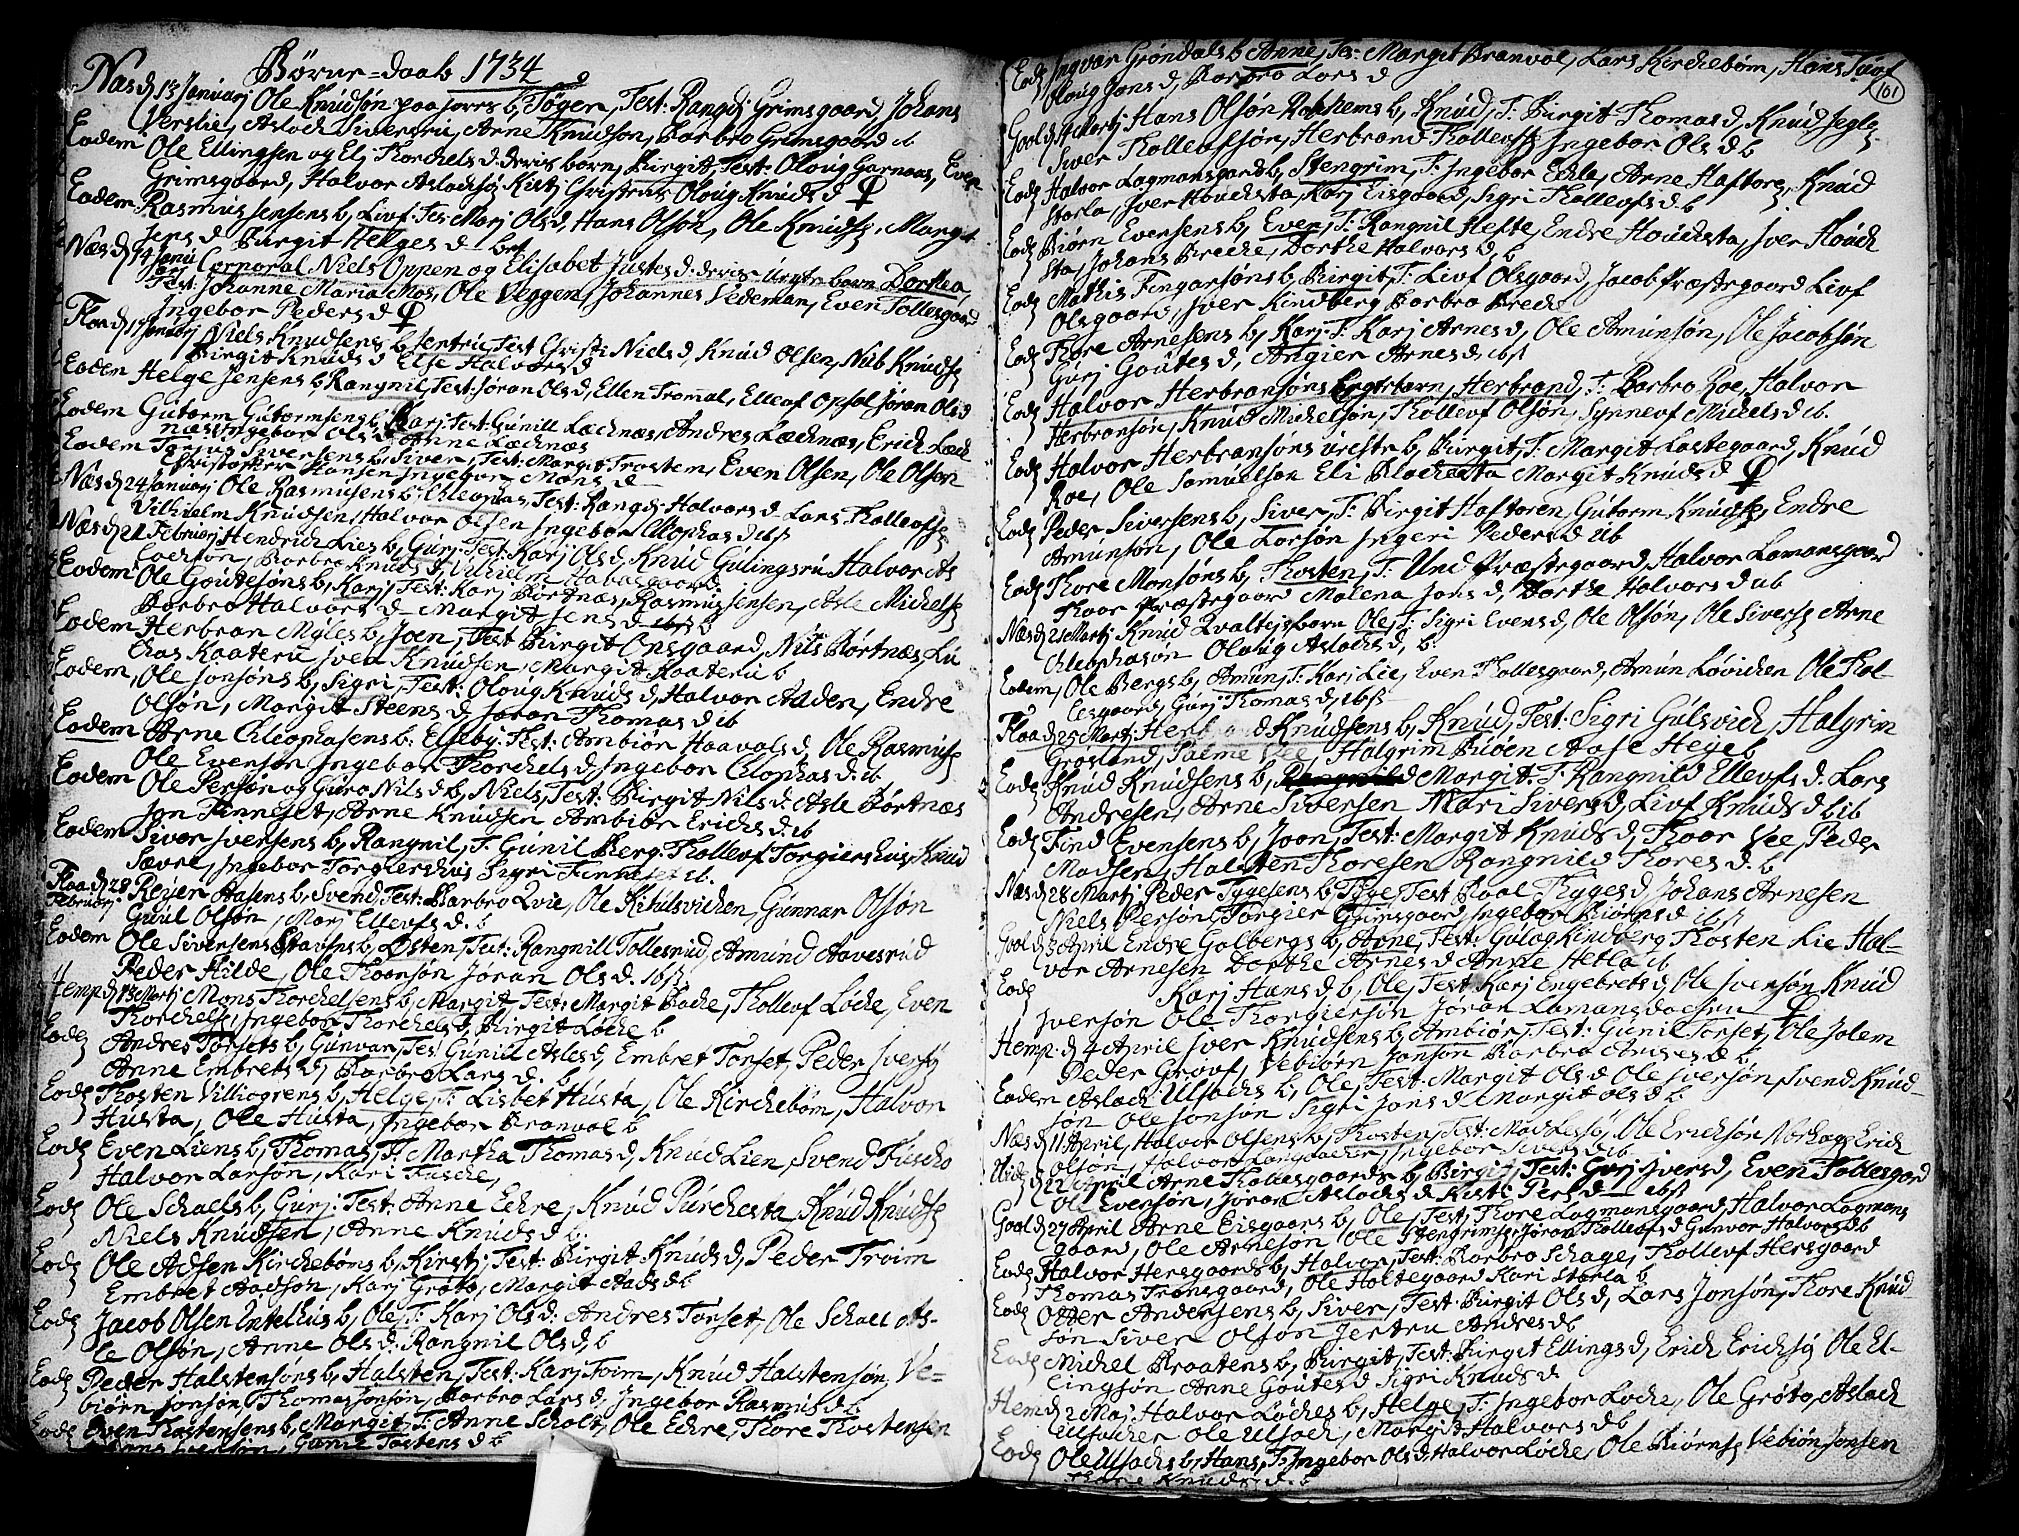 Børne-daab 1734
Næs d 13 Januarj Ole Knudsøn paa Jøres b, Tøger, Test: Rangdj Grimsgaard, Johans
Verslie, Aslach Siversrü, Arne Knudsøn, Barbro Grimsgaard ib
Eodem Ole Ellingsen og Elj Thorchels d. deris barn, Birgit, Test: Oloug Garnaas, Even
Grimsgaard, Halvor Aslachsø, Kistj Christens Oloug Knuds d
Eodem Rasmus Jensens b, Livf, Tes: Marj Ols d, Hans Olsøn, Ole Knuds, Margit
Jens d Birgit Helges d
Næs d 14 Janu
arj Corporal Niels Oppen og Elisabet Justes d. deris barn Dorthea,
Test: Johanne Maria Mos, Ole Veggen, Johannes Vedeman, Even Tollesgaard
Ingebor Peders d
Flaa d 17 Januarj Niels Knudsens b Jertru Test Christi Niels d, Knud Olsen, Nub Knuds
Birgit Knuds d Else Halvors d
Eodem Helge Jensens b, Rangnil, Test: Jøran Ols d, Ellen Tromal, Ellef Opsal Jøran Ols d
Eodem Gutorm Gutormsens b Karj Test: Gunill Læchnæs, Andres Læchnæs, Erich Læch
næs Ingebor Ols d Anne Læchnæs
Eodem Siversens b, Siver, Test: Margit Trostem, Even Olsen, Ole Olsøn
Christopher Hansen Ingebor Mons d
Næs d 24 Januarj Ole Rasmusens b: Cleophas, Test: Rangdj Halvors d Lars Tholleofs
Vilhelm Knudsen, Halvor Olsen Ingebor Cleophas d
Næs d 21 Februarj Hendrich Lies b, Gurj, Test: Karj Ols d, Knud Gulingsrü Halvor As
lachsøn, Barbro Knuds d, Vilhelm
Eodem Ole Goutesøns b, Karj, Test: Karj Børtnæs, Rasmus Jensen, Asle Michels
Barbro Halvors d Margit Jens d
Eodem Herbran Myles b, Joen, Test Birgit Opsgaard, Nils Børtnæs, Lu
chas Kaaterü Iver Knudsen, Margit Kaaterü b
Eodem, Ole Jonsøns b, Sigri, Test: Oloug Knuds d, Halvor Aaden, Endre
Olsøn, Margit Steens d Jøran Thomas d ib
Eodem Arne Chleophasens b: Elsebj, Test: Ambiør Haavols d, Ole Rasmus
Ole Evensøn Ingebor Thorchels d, Ingebor Cleophas d. ib
Eodem Ole Persøn og Guro Nils d b, Niels, Test: Birgit Nils d. Asle Børtnæs
Jon Finneset, Arne Knudsen Ambiør Erichs d. ib
Eodem Siver Iversens b, Rangnil, T: Gunil Berg. Tholleof Torgiershus, Knud
Sævre, Ingebor Torgiershus Sigri Finneset ib.
Flaa d 28
Februarj Reyer Aasens b, Svend, Test: Barbro Qvie, Ole Kitulsvichen, Gunnar Olsøn
Guul Olsøn, Marj Ellevfs d. b
Eodem Ole Siversens Stavens b, Østen, Test: Rangnill Tollesrud, Amund Aavesrud
Peder Hilde, Ole Thoresøn Jøran Ols d.
Hemp. d 13 Martj Mons Thorchelsens b, Margit, Test: Margit Bache, Tholleof Løche, Even
Thorchels, Ingebor Thorchels d, Birgit Løche b
Eod Andres Torsets b, Gunvar, Tes: Gunill Asles d, Embret Torset, Peder Iversø
Anne Embrets d, Barbro Lars d. b
Eod Thosten Villiogrens b, Helge, T: Lisbet Husta, Ole Kirchebøm, Halvor
Husta, Ole Husta, Ingebor Branvol b
Eod Even Liens b, Thomas, T: Martha Thomas d, Knud Lien, Svend Fusche
Halvor Larsøn, Kari Fusche,
Eod Ole Schaels b, Gurj: Test: Anne Echre, Knud Purchesta, Knud Knuds
Niels Knudsen, Anne Knuds d b:
Eod Ole Adsen Kirchebøns b, Kirstj, Test: Birgit Knuds d, Peder Troim
Embret Aadsøn, Karj Grøto, Margit Aads d b
Eod Jacob Olsen Ulsehus b, Ole, T: Karj Ols d: Andres Torset, Ole Schael As-
le Olsøn, Anne Ols d. Rangnil Ols d, b
Eod Peder Halstensøns b, Halsten, Test: Karj Toim, Knud Halstensøn, Ve-
biørn Jonsøn, Thomas Jonsøn, Barbro Lars d, Ingebor Rasmus d b
Eod Even Thostensens b, Margit, T: Anne Scholt, Ole Echre, Thore Thostensen
Gunil Tostens d b
Eod Ingvar Grøndals b, Anne, Tes: Margit Branvol, Lars Kirchebøm, Hans Tuuf
Oloug Jons d, Barbro Lars d 101
Gool d 14 Martj Hans Olsøn b, Knud, T: Birgit Thomas d, Knud
Siver Tholleofsøn, Herbrand Tholleofs Ingebor Ols d b
Eod Halvor Lagmansgaards b, Stengrim, T: Ingebor Echle, Arne Haftorn, Knud
Storla, Iver Houchsta, Karj Eisgaard, Sigri Tholleofs d b
Eod Biørn Evensens b, Even, T: Rangnil Hefte, Endre Houchsta, Iver Houch
sta, Johans Breche, Dorthe Halvors d, b
Eod Mathis Fingarsøns b, Birgit, T: Livf Olsgaard, Jacob Præstegaard Livf
Olsgaard, Iver Kindberg, Barbro Breche
Eod Thore Arnesens b, Karj T: Karj Arnes d, Ole Amunsøn, Ole Jacobsøn
Gurj Goutes d, Angier Arnes d.
Eod Halvor Herbransøns barn, Herbrand, T: Barbro Roe, Halvor
Herbransøn, Knud Michelsøn, Tholleof Olsøn, Synneof Michels d ib.
Eod Halvor Herbransøns b, Birgit, T: Margit Løstegaard, Knud
Roe, Ole Samuelsøn Eli Blachesta Margit Knuds d
Eod Peder Siversens b, Siver, T: Birgit Haftoren, Gutorm Knuds, Endre
Amunsøn, Ole Larsøn Ingeri Peders d ib
Eod Thore Monsøns b, Thosten, T: Und Præstegaard, Halvor Lamansgaard
Thoor Præstegaard Malena Jons d, Dorthe Halvors d ib
Næs d 21 Martj Knud barn Ole, T: Sigri Evens d, Ole Olsøn, Ole Sivers Arne
Chleophasøn Oloug Aslachs d, b.
Eodem, Ole Bergs b, Amun, T: Karj Lie, Even Thollesgaard, Amun Løvichen Ole Thol-
lesgaard, Gurj Thomas d,
Flaa d 25 Martj Herbrand Knudsens b, Knud, Test: Sigri Gulsvich, Halgrim
Grøsland, Salme Vee, Halgrim Biøen Aase Heges b
Eod Knud Knudsens b, Margit. T: Rangnild Ellevfs d. Lars
Andresen, Arne Siversen Mari Sivers d, Livf Knuds d ib
Eod Find Evensens b, Joen, Test: Margit Knuds d, Thoor Vee, Peder
Madsen, Halsten Thoresen Rangnild Thores d. b
Næs d 28 Martj Peder Tygesens b, Tyge, Test: Thyges d, Johans Arnesen
Niels Persøn, Torgier Grimsgaard, Ingebor Biørns d
Gool d 3 April Endre Golbergs b, Arne, Test: Gulog Kindberg Thosten Lie Hal-
vor Arnesen Dorthe Arnes d Anne Hetla ib
Eod Karj Hans d, b, Ole, Test: Karj Engebrets d, Ole Iversøn Knud
Iversøn Ole Thorgiersøn Jøran
Hemp. d 4 April Iver Knudsens b, Ambiør, Test: Gunil Torset, Ole Jolem
Peder Grovf, Vebiørn Jonsøn Barbro Andres d b
Eodem Aslach Ulsachs b, Ole, Test: Margit Ols d Ole Iversøn, Svend Knud-
søn Ole Jonsøn Sigri Jons d Margit Ols d b
Næs d 11 April, Halvor Olsens b, Thosten, Ole Erichsøn Erich
Olsøn, Halvor Ingebor Sivers d ib
d 22 April Arne Thollesgaards b, Birgit, Test: Gurj Ivers d, Even Tollesgard
Ole Evensøn, Jøran Aslachs d Kisti Pers d
Gool d 27 April Arne Eisgaars b, Ole, Test, Thore Lagmansgaard, Halvor Lagmans
gaard, Ole Arnesøn Ole Stengrims, Jøran Tholleofs d Gunvor Halvors d b
Eod Halvor Hersgaards b, Halvor, Test: Barbro Schage, Tholleof Hersgaard
Thomas Trønsgaard, Ole Holtegaard Kari Storla b
Eod Otter Andersens b, Siver, Test: Birgit Ols d, Lars Jonsøn, Thore Knud
søn Siver Olsøn Jertru Andres d b
Eod Michel Braatens b, Birgit, Test: Birgit Ellings d, Erich Erichsø Ole El-
lingsøn Anne Goutes d Sigri Knuds d
Hem d 2 Maj Halvor Løches b, Helge, T: Ingebor Løche, Ole Grøto, Aslach
Ulsachen Ole Ulsach, Margit Halvors d b
Eod Ole Ulsachs b, Hans, T: Ingebor Ols d, Halvor Løche, Ole Biørns Vebiørn Jonsen
Knuds d. b